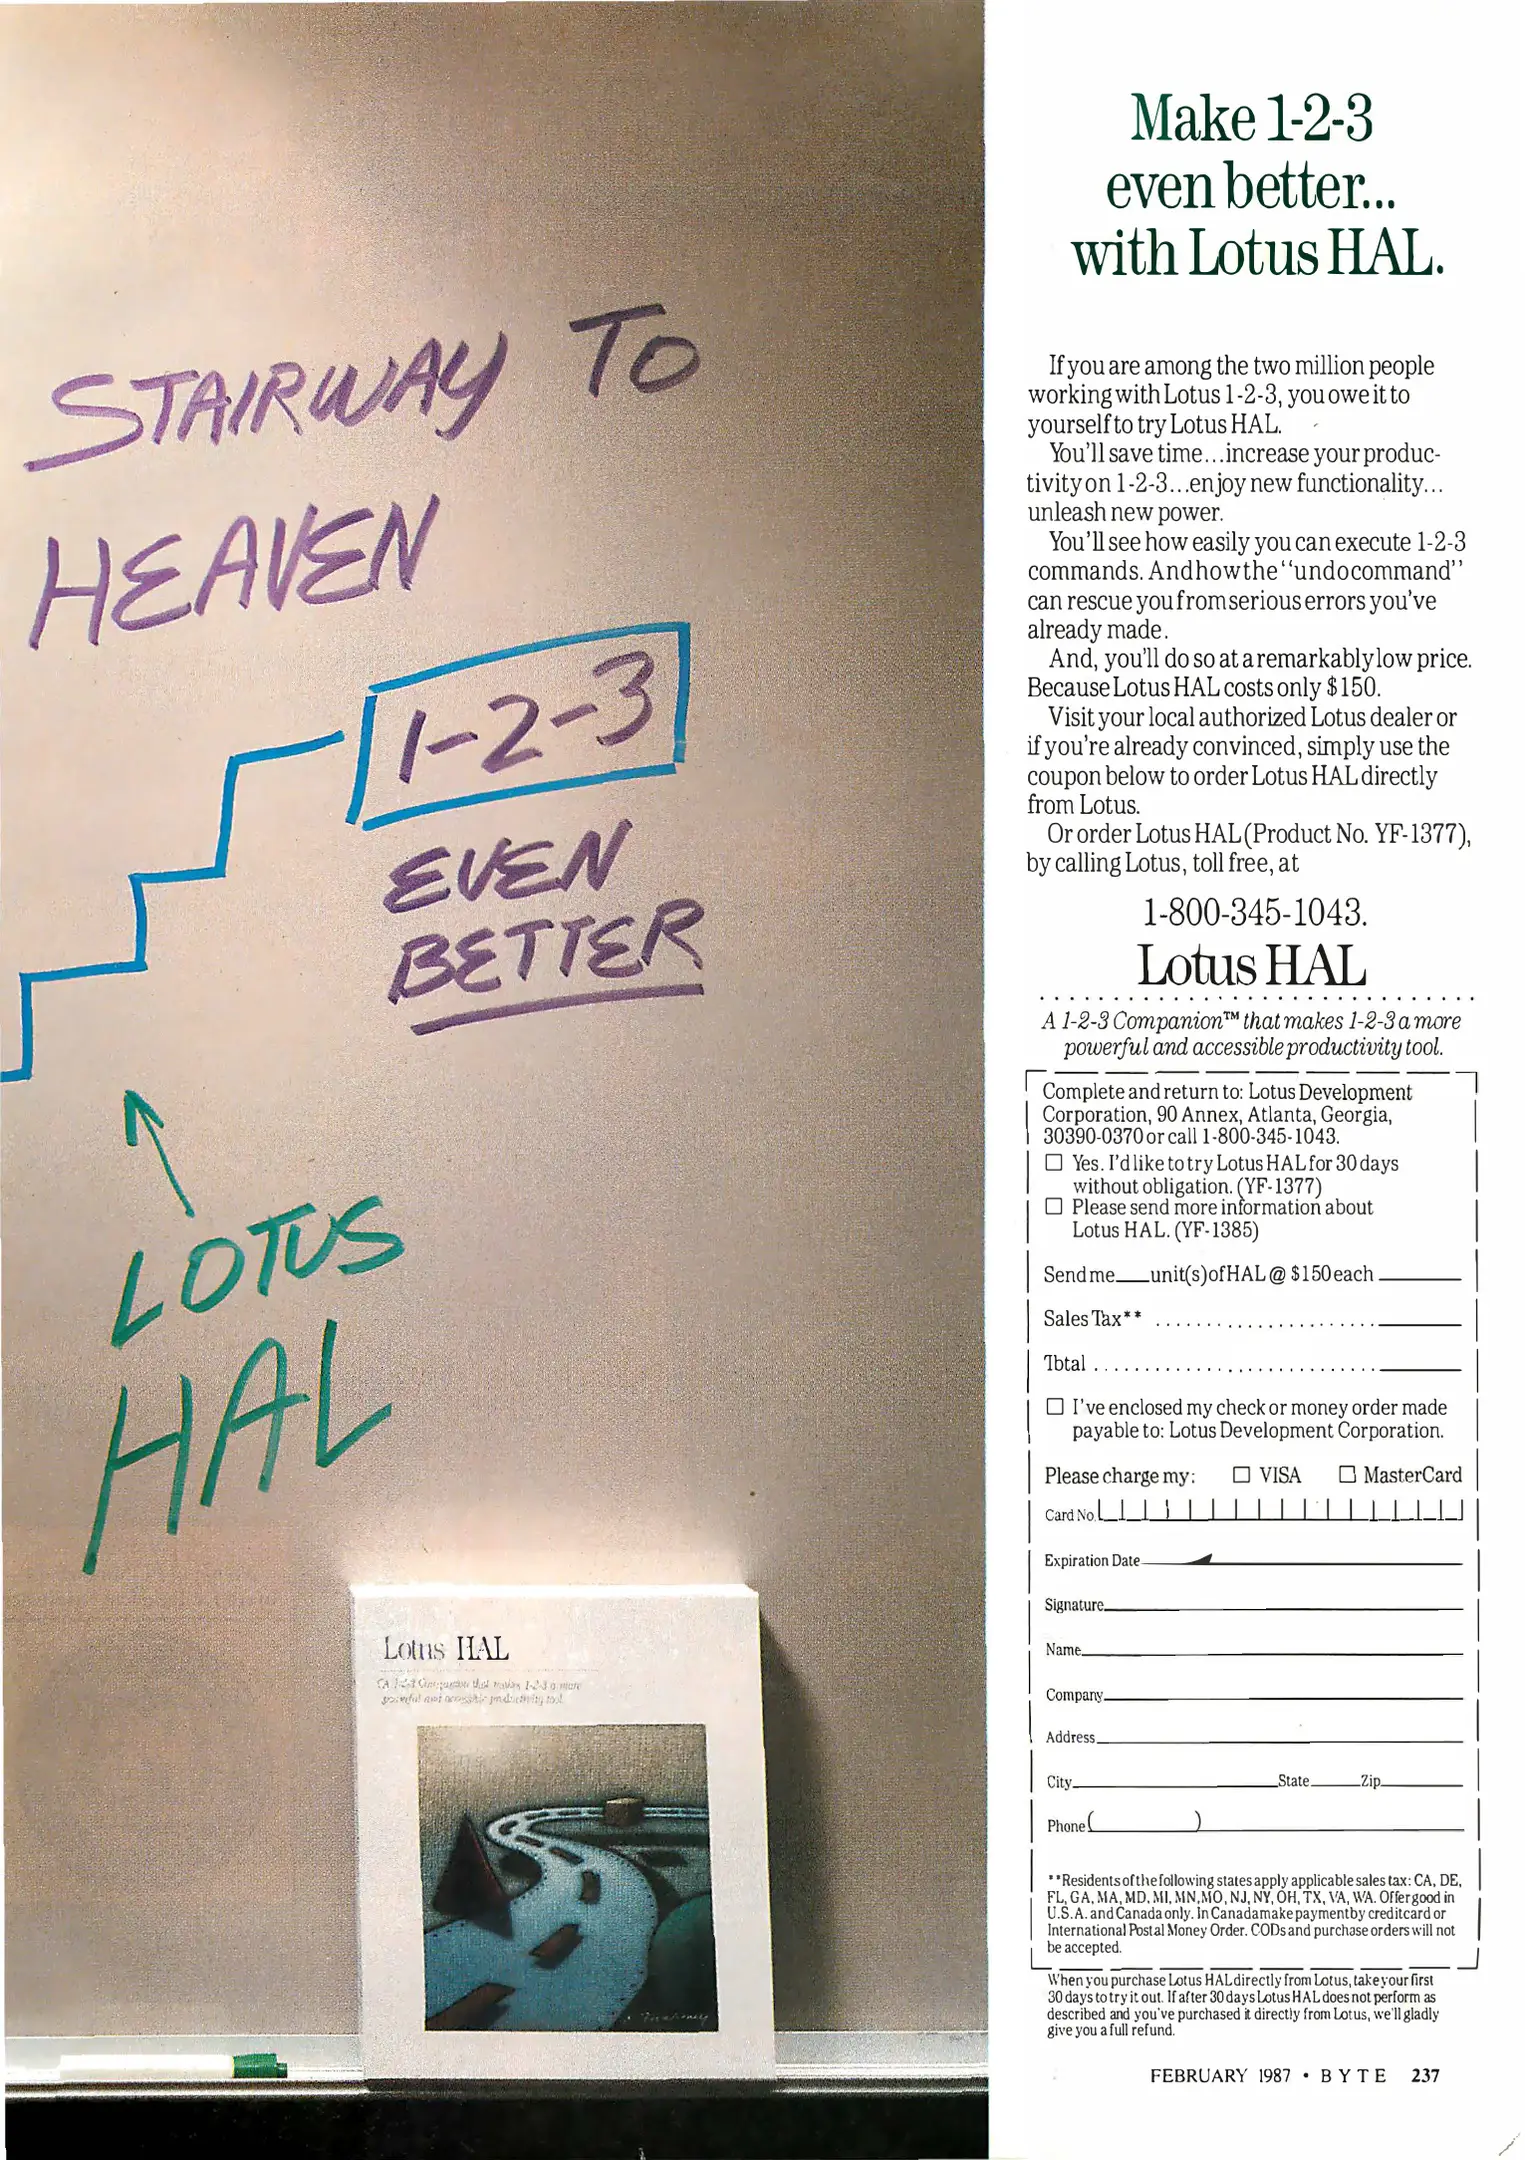 STAIRWAY TO
HEAVEN
1-2-3
EVEN
BETTER
LOTUS
HAL
Lotus HAL
A 1-2-3 Companion that makes 1-2-3 a more
powerful and accessible productivity tool.
Make 1-2-3
even better...
with Lotus HAL.
If you are among the two million people
working with Lotus 1-2-3, you owe it to
yourself to try Lotus HAL.
You'll save time...increase your produc-
tivity on 1-2-3...enjoy new functionality...
unleash new power.
You'll see how easily you can execute 1-2-3
commands. And how the "undo command"
can rescue you from serious errors you've
already made.
And, you'll do so at a remarkably low price.
Because Lotus HAL costs only $150.
Visit your local authorized Lotus dealer or
if you're already convinced, simply use the
coupon below to order Lotus HAL directly
from Lotus.
Or order Lotus HAL (Product No. YF-1377),
by calling Lotus, toll free, at
1-800-345-1043.
Lotus HAL
A 1-2-3 Companion™ that makes 1-2-3 a more
powerful and accessible productivity tool.
Complete and return to: Lotus Development
Corporation, 90 Annex, Atlanta, Georgia,
30390-0370 or call 1-800-345-1043.
☐ Yes. I'd like to try Lotus HAL for 30 days
without obligation. (YF-1377)
☐ Please send more information about
Lotus HAL. (YF-1385)
Send me___unit(s) of HAL @ $150 each ______
Sales Tax** ...................... ______
Total ............................ ______
☐ I've enclosed my check or money order made
payable to: Lotus Development Corporation.
Please charge my: ☐ VISA ☐ MasterCard
Card No.
Expiration Date
Signature
Name
Company
Address
City State Zip
Phone ( )
**Residents of the following states apply applicable sales tax: CA, DE,
FL, GA, MA, MD, MI, MN, MO, NJ, NY, OH, TX, VA, WA. Offer good in
U.S.A. and Canada only. In Canada make payment by credit card or
International Postal Money Order. CODs and purchase orders will not
be accepted.
When you purchase Lotus HAL directly from Lotus, take your first
30 days to try it out. If after 30 days Lotus HAL does not perform as
described and you've purchased it directly from Lotus, we'll gladly
give you a full refund.
FEBRUARY 1987 • B Y T E 237